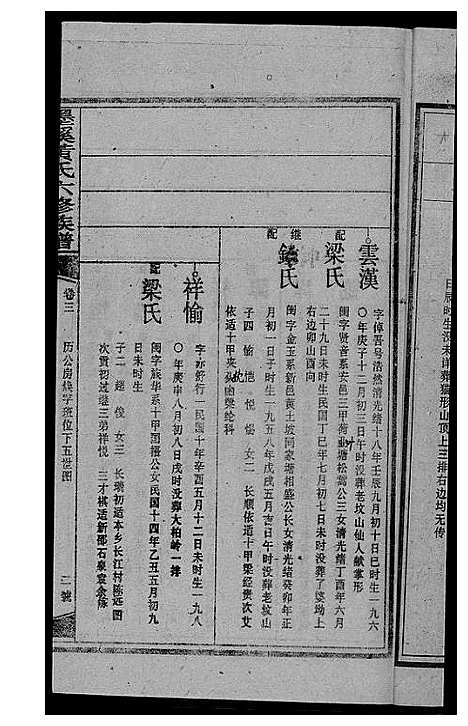 日辰时生没未详葬猫形山顶上三排右边均无传
雲漢
字倬吾号浩然清光绪十八年壬辰九月初十日巳时生一九六
〇年庚子十二月初三日午时没葬老坟山仙人献掌形
配
梁氏
闺字贤音系安邑三甲荷塘松嵩公三女清光绪丁酉年六月
二十九日未时生民国丁巳年七月初七日未时没葬了婆坳上
右边卯山酉向
继配
氏
闺字金玉系新邑黄土坡同家塘相盛公长女清光绪癸卯年正
月初一日子时生一九五八年戊戌五月吉日午时没葬老坟山
子四 愉 恺 悦 女二 长顺依适十甲梁经贵次艾
依适十甲夹梁纶科
祥愉
字行一民国十年辛酉五月十二日未时生一九八
〇年庚申八月初八日戌时没葬大柏岭一排
配
梁氏
闺字族华系十甲国摇公女民国十四年乙丑五月初九
日未时生
子二 超 俊 女三 长瑞初适本乡长江村陈远图
次贡初过继三弟祥悦 三才棋适新邵石泉袁余修
墨溪黄氏六修族谱
卷三
历公房焕字班位下五世图
二號